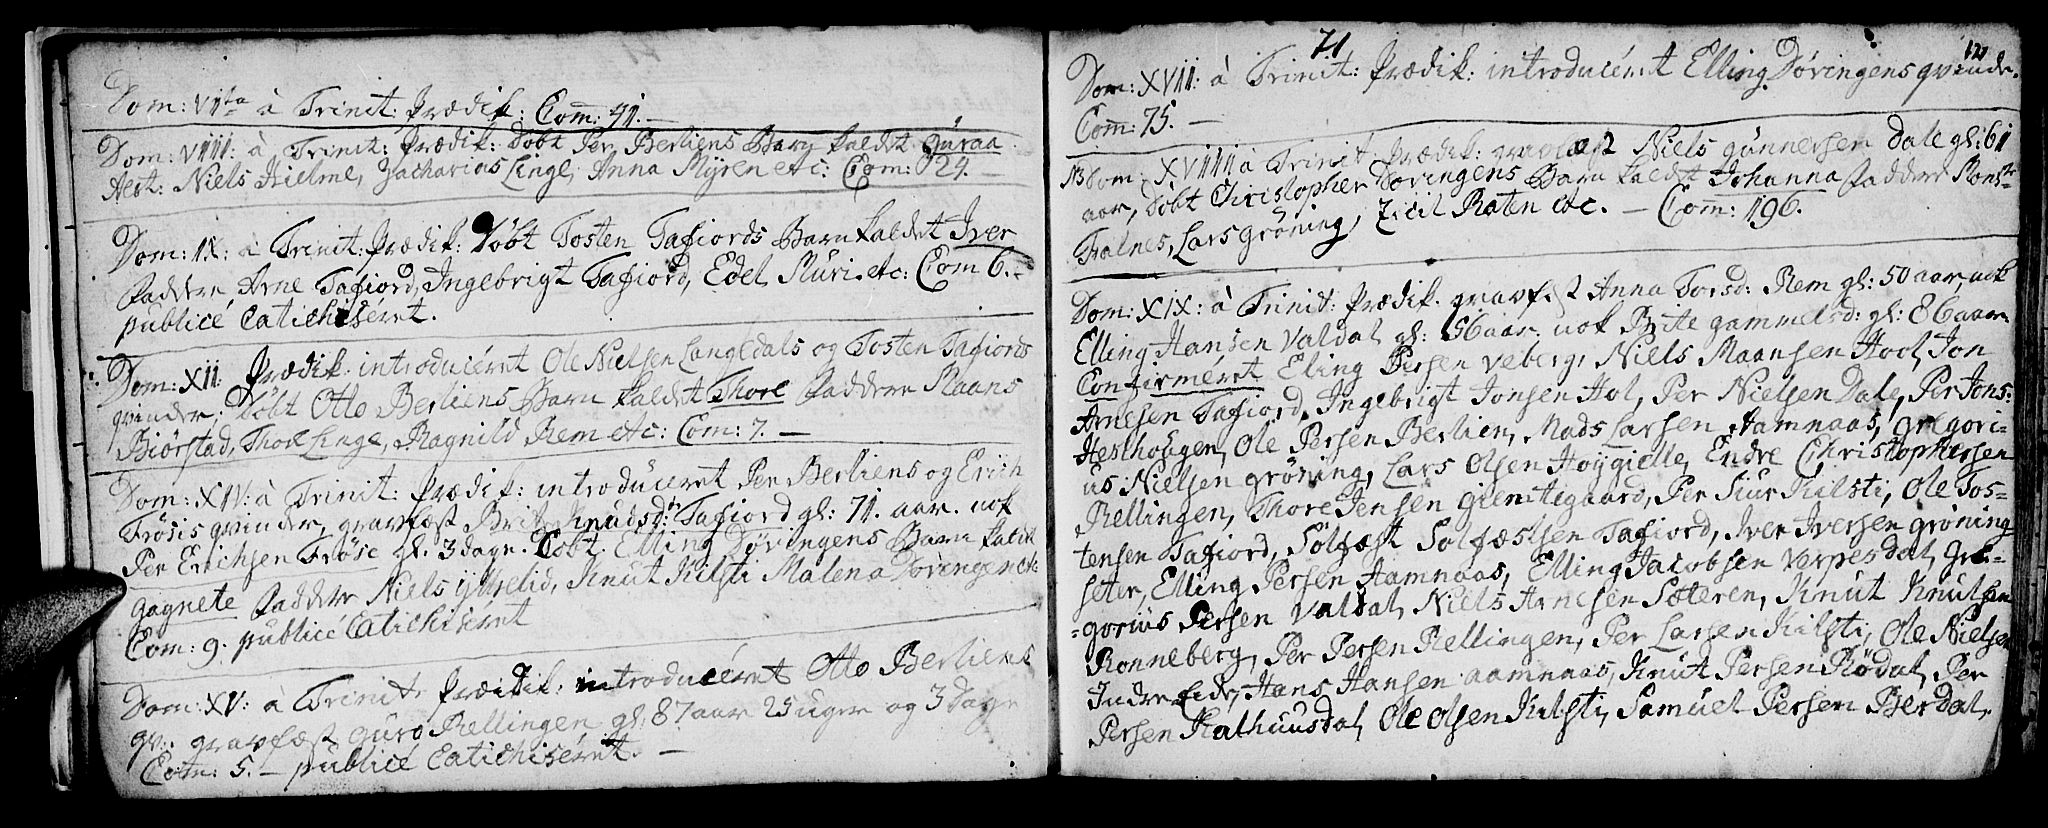 Dom: VIta à Trinit: Prædik: Com: 41. —
Dom: VIII: à Trinit: Prædik: Døbt Per Berliens Barn kaldet Guraa
Test: Niels Hielme, Zacharias Linge, Anna Myren etc: Com: 24. —
Dom: IX: à Trinit: Prædik: Døbt Tosten Tafiords Barn kaldet Iver
Faddere Arne Tafiord, Ingebrigt Tafiord, Edel Muri etc: Com 6. —
publicé Catichiséret.
Dom: XII: Prædik: introducéret Ole Nielsen Langdals og Tosten Tafiords
qvinder, Døbt Otto Berliens Barn kaldet Thore Faddere Maans
Biørstad, Thore Linge, Ragnild Rem etc: Com: 7. —
Dom: XIV: à Trinit: Prædik: introduceret Per Berliens og Erich
Frøsis qvinder, gravfæst Brit Knudsdtr Tafiord gl: 71. aar. nok
Per Erichsen Frøse gl. 3 dage. Døbt Elling Døvingens Barn kaldet
gagnete Faddere Niels Ytrelid, Knut Kilsti Malena Døvingen etc
Com: 9. publicé Catichiséret
Dom: XV: à Trinit: Prædik: introducéret Otto Berliens
qv: gravfæst Guro Rellingen gl: 87 aar 25 uger og 3 Dage
Com: 5. — publicé Catichiséret. —
71
121
Dom: XVII: à Trinit: Prædik: introducéret Elling Døvingens qvinde.
Com: 75. —
NB Dom: XVIII à Trinit: Prædik: gravfæst Niels Gunnersen Dale gl: 61
aar, Døbt Christopher Døvingens Barn kaldet Johanna Faddere Mons
Tralnes, Lars Grøning, Zicil Raten etc. — Com: 196.
Dom: XIX: à Trinit: Prædik. gravfæst Anna Torsd: Rem gl: 50 aar, nok
Elling Hansen Valdal gl: 56 aar, nok Brite gammelsd: gl: 86 aar.
Confirméret Eling Persen Veberg, Niels Maansen Hool, Jon
Arnesen Tafiord, Ingebrigt Jonsen Hol, Per Nielsen Dale, Per Jons:
Hesthougen, Ole Persen Berlien, Mads Larsen Hamnaas, Gregori-
us Nielsen Grøning, Lars Olsen Høygielle, Endre Christophersen
Rellingen, Thore Jensen Gientegaard, Per Siur Kilsti, Ole Tos-
tensen Tafiord, Sølfæst Solfæstsen Tafiord, Iver Iversen Grøning
seter, Elling Persen Hamnaas, Elling Jacobsen Verpesdal, Gre-
-gorius Persen Valdal, Niels Arnesen Søteren, Knut Knutsen
Ronneberg, Per Persen Rellingen, Per Larsen Kilsti, Ole Nielsen
Indre Eide, Hans Hansen aamnaas, Knut Persen Rødal, Per
Persen Kalhuusdal, Ole Olsen Kilsti, Samuel Persen Berdal,